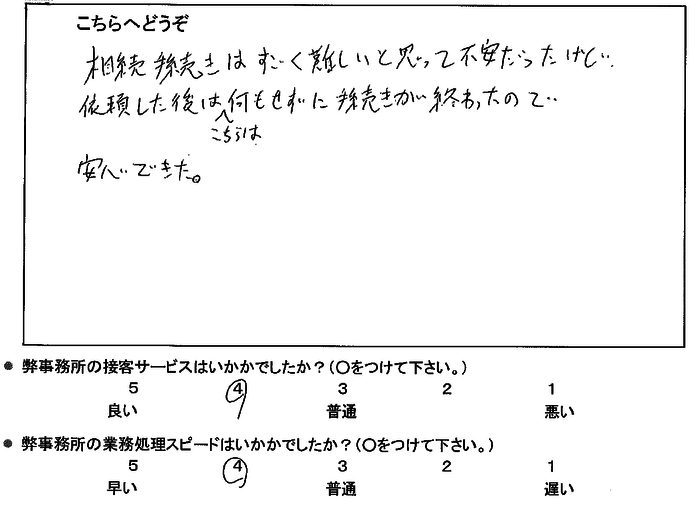 こちらへどうぞ
相続手続きはすごく難しいと思って不安だったけど…
依頼した後は何もせずに手続きが終わったので…
こちらは
安心できた。
● 弊事務所の接客サービスはいかかでしたか?(〇をつけて下さい。)
5 4 3 2 1
良い 普通 悪い
● 弊事務所の業務処理スピードはいかかでしたか?(〇をつけて下さい。)
5 4 3 2 1
早い 普通 遅い